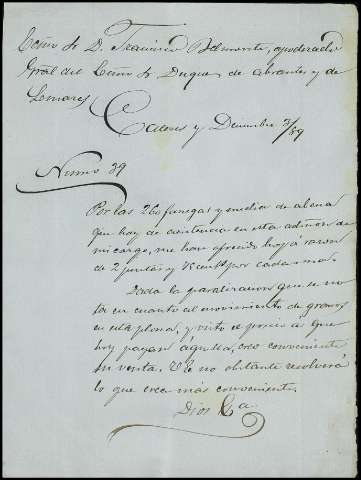 Exmo Sr D. Francisco Belmonte, apoderado
Gral del Exmo Sr Duque de Abrantes y de
Linares
Cáceres y Diciembre 3/89
Numero 39
Por las 260 fanegas y media de abena
que hay de existencia en esta admon de
mi cargo, me han ofrecido hoy á razon
de 2 puntas y 75 cents por cada una.
Dada la paralizacion que se no
ta en cuanto al movimiento de granos
en esta plaza, y visto el precio á que
hoy pagan aquella, creo conveniente
su venta. VE no obstante resolverá
lo que crea más conveniente.
Dios &a